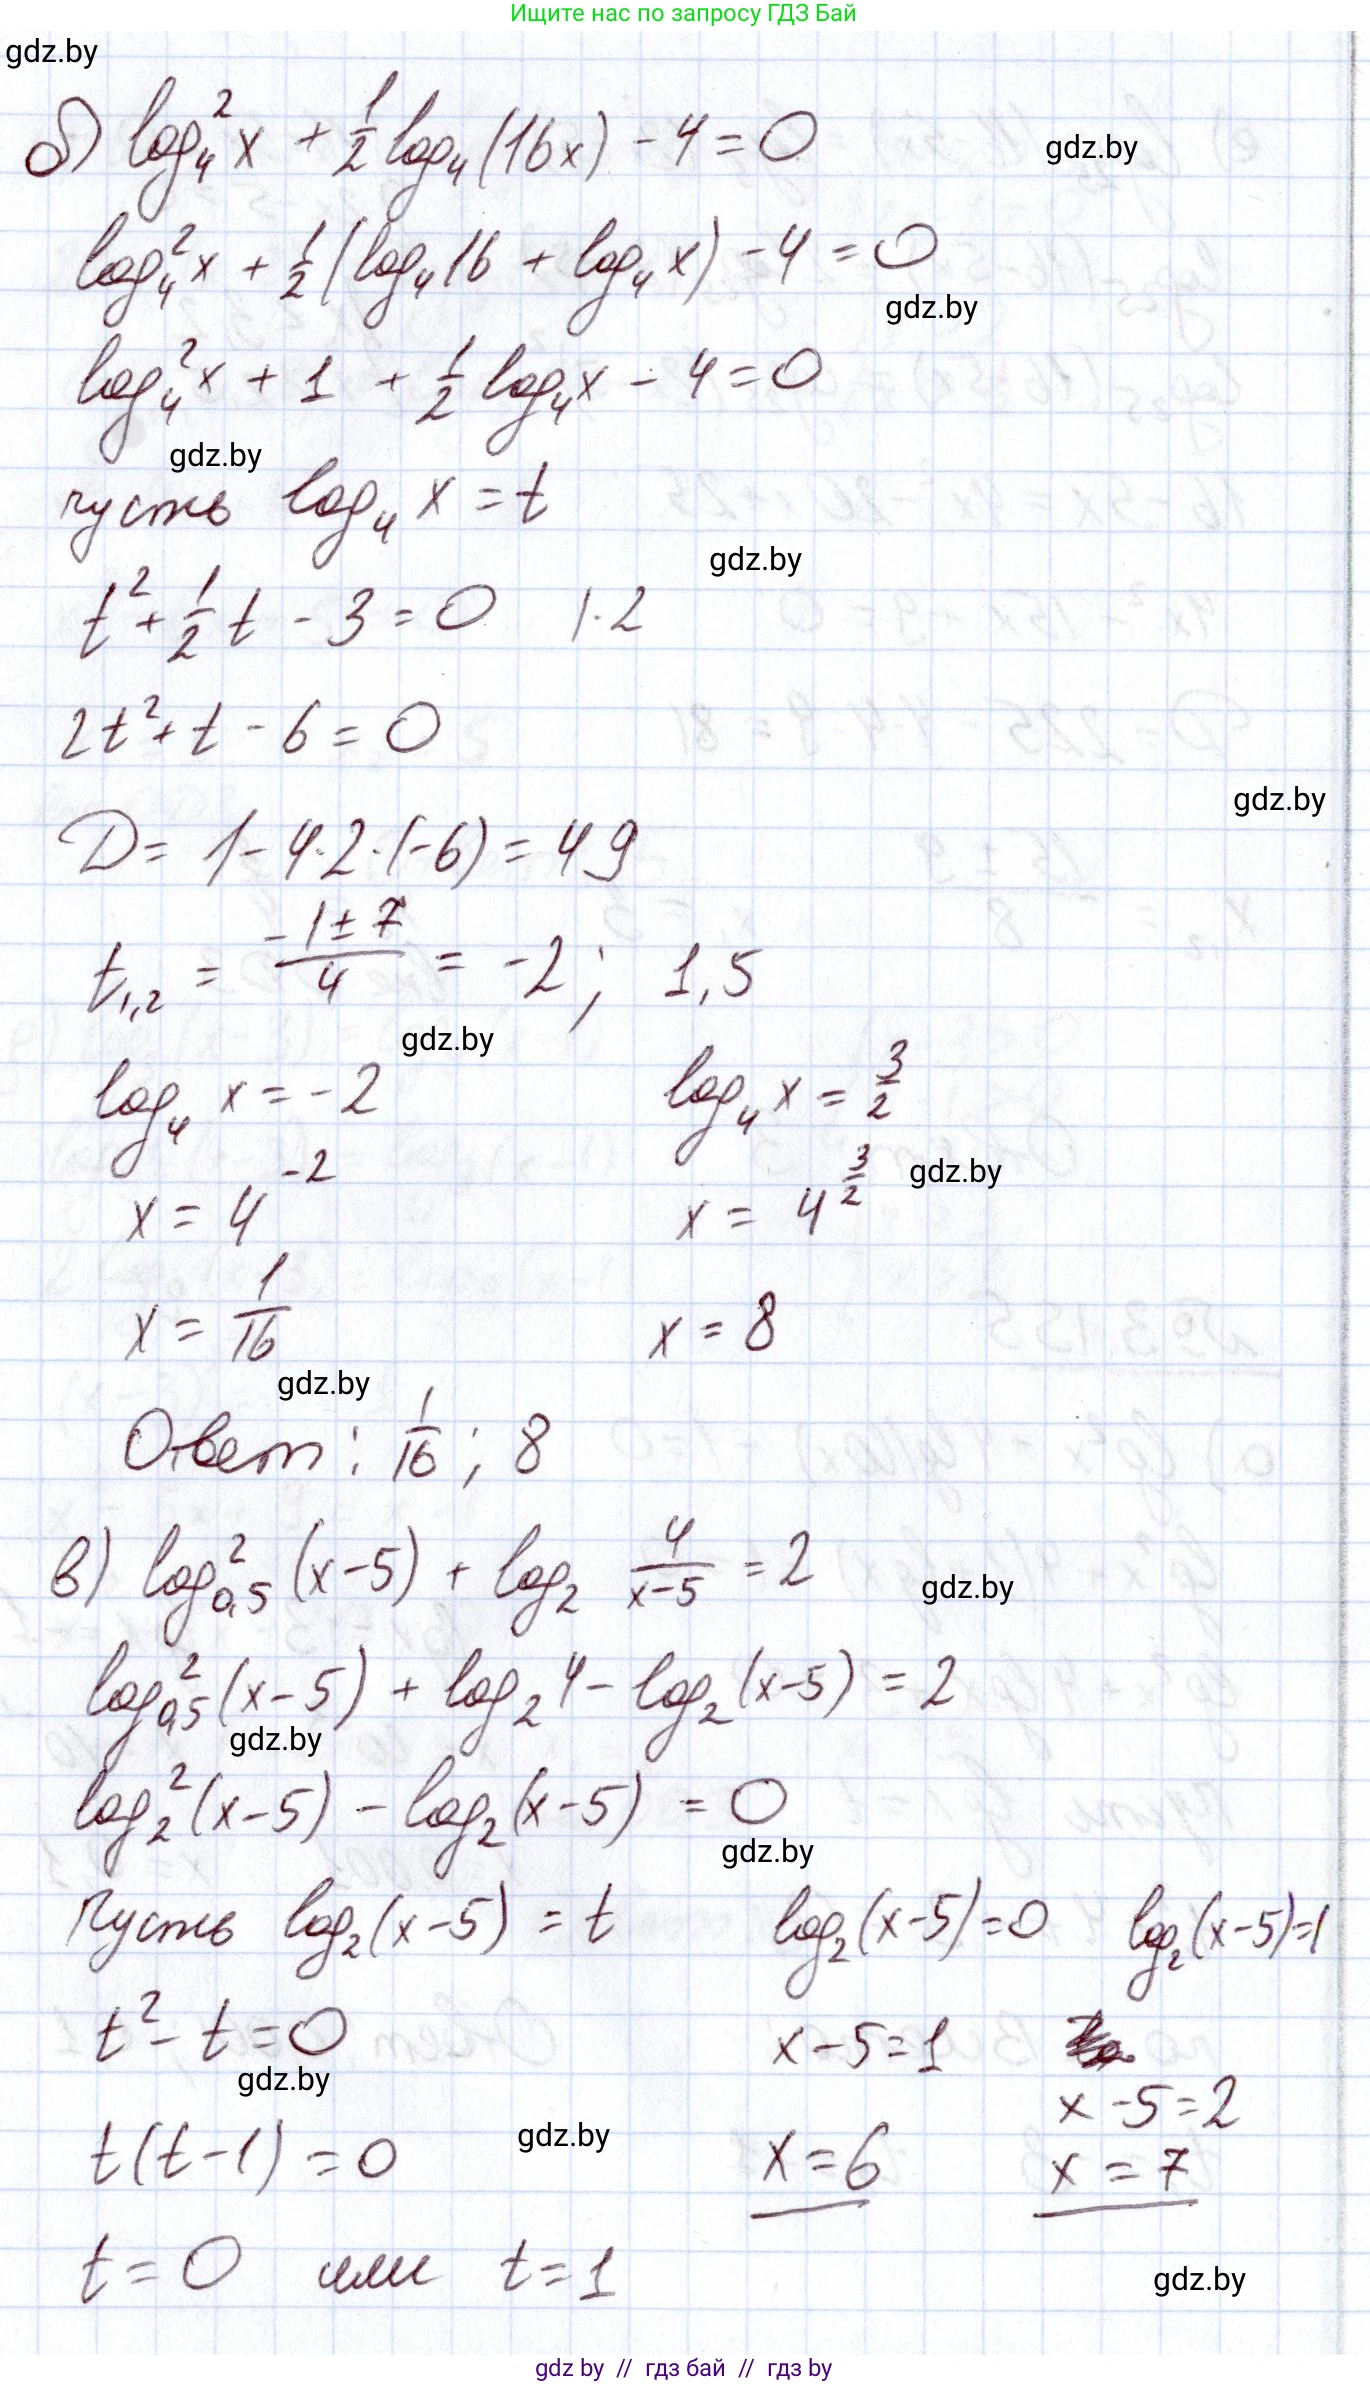 Ищите нас по запросу ГДЗ Бай
gdz.by
б) log₄²x + 1/2 log₄(16x) - 4 = 0
gdz.by
log₄²x + 1/2 (log₄16 + log₄x) - 4 = 0
gdz.by
log₄²x + 1 + 1/2 log₄x - 4 = 0
gdz.by
пусть log₄x = t
gdz.by
t² + 1/2 t - 3 = 0 |·2
2t² + t - 6 = 0
gdz.by
D = 1 - 4·2·(-6) = 49
t₁,₂ = (-1 ± 7)/4 = -2; 1,5
gdz.by
log₄x = -2 log₄x = 3/2
x = 4⁻² x = 4^(3/2) gdz.by
x = 1/16 x = 8
gdz.by
Ответ: 1/16; 8
в) log₀,₅²(x-5) + log₂ 4/(x-5) = 2
gdz.by
log₀,₅²(x-5) + log₂4 - log₂(x-5) = 2
gdz.by
log₂²(x-5) - log₂(x-5) = 0
gdz.by
Пусть log₂(x-5) = t log₂(x-5)=0 log₂(x-5)=1
t² - t = 0 x-5=1
gdz.by
x-5=2
t(t-1) = 0 gdz.by x=6 x=7
t = 0 или t = 1
gdz.by
gdz by // гдз бай // гдз by